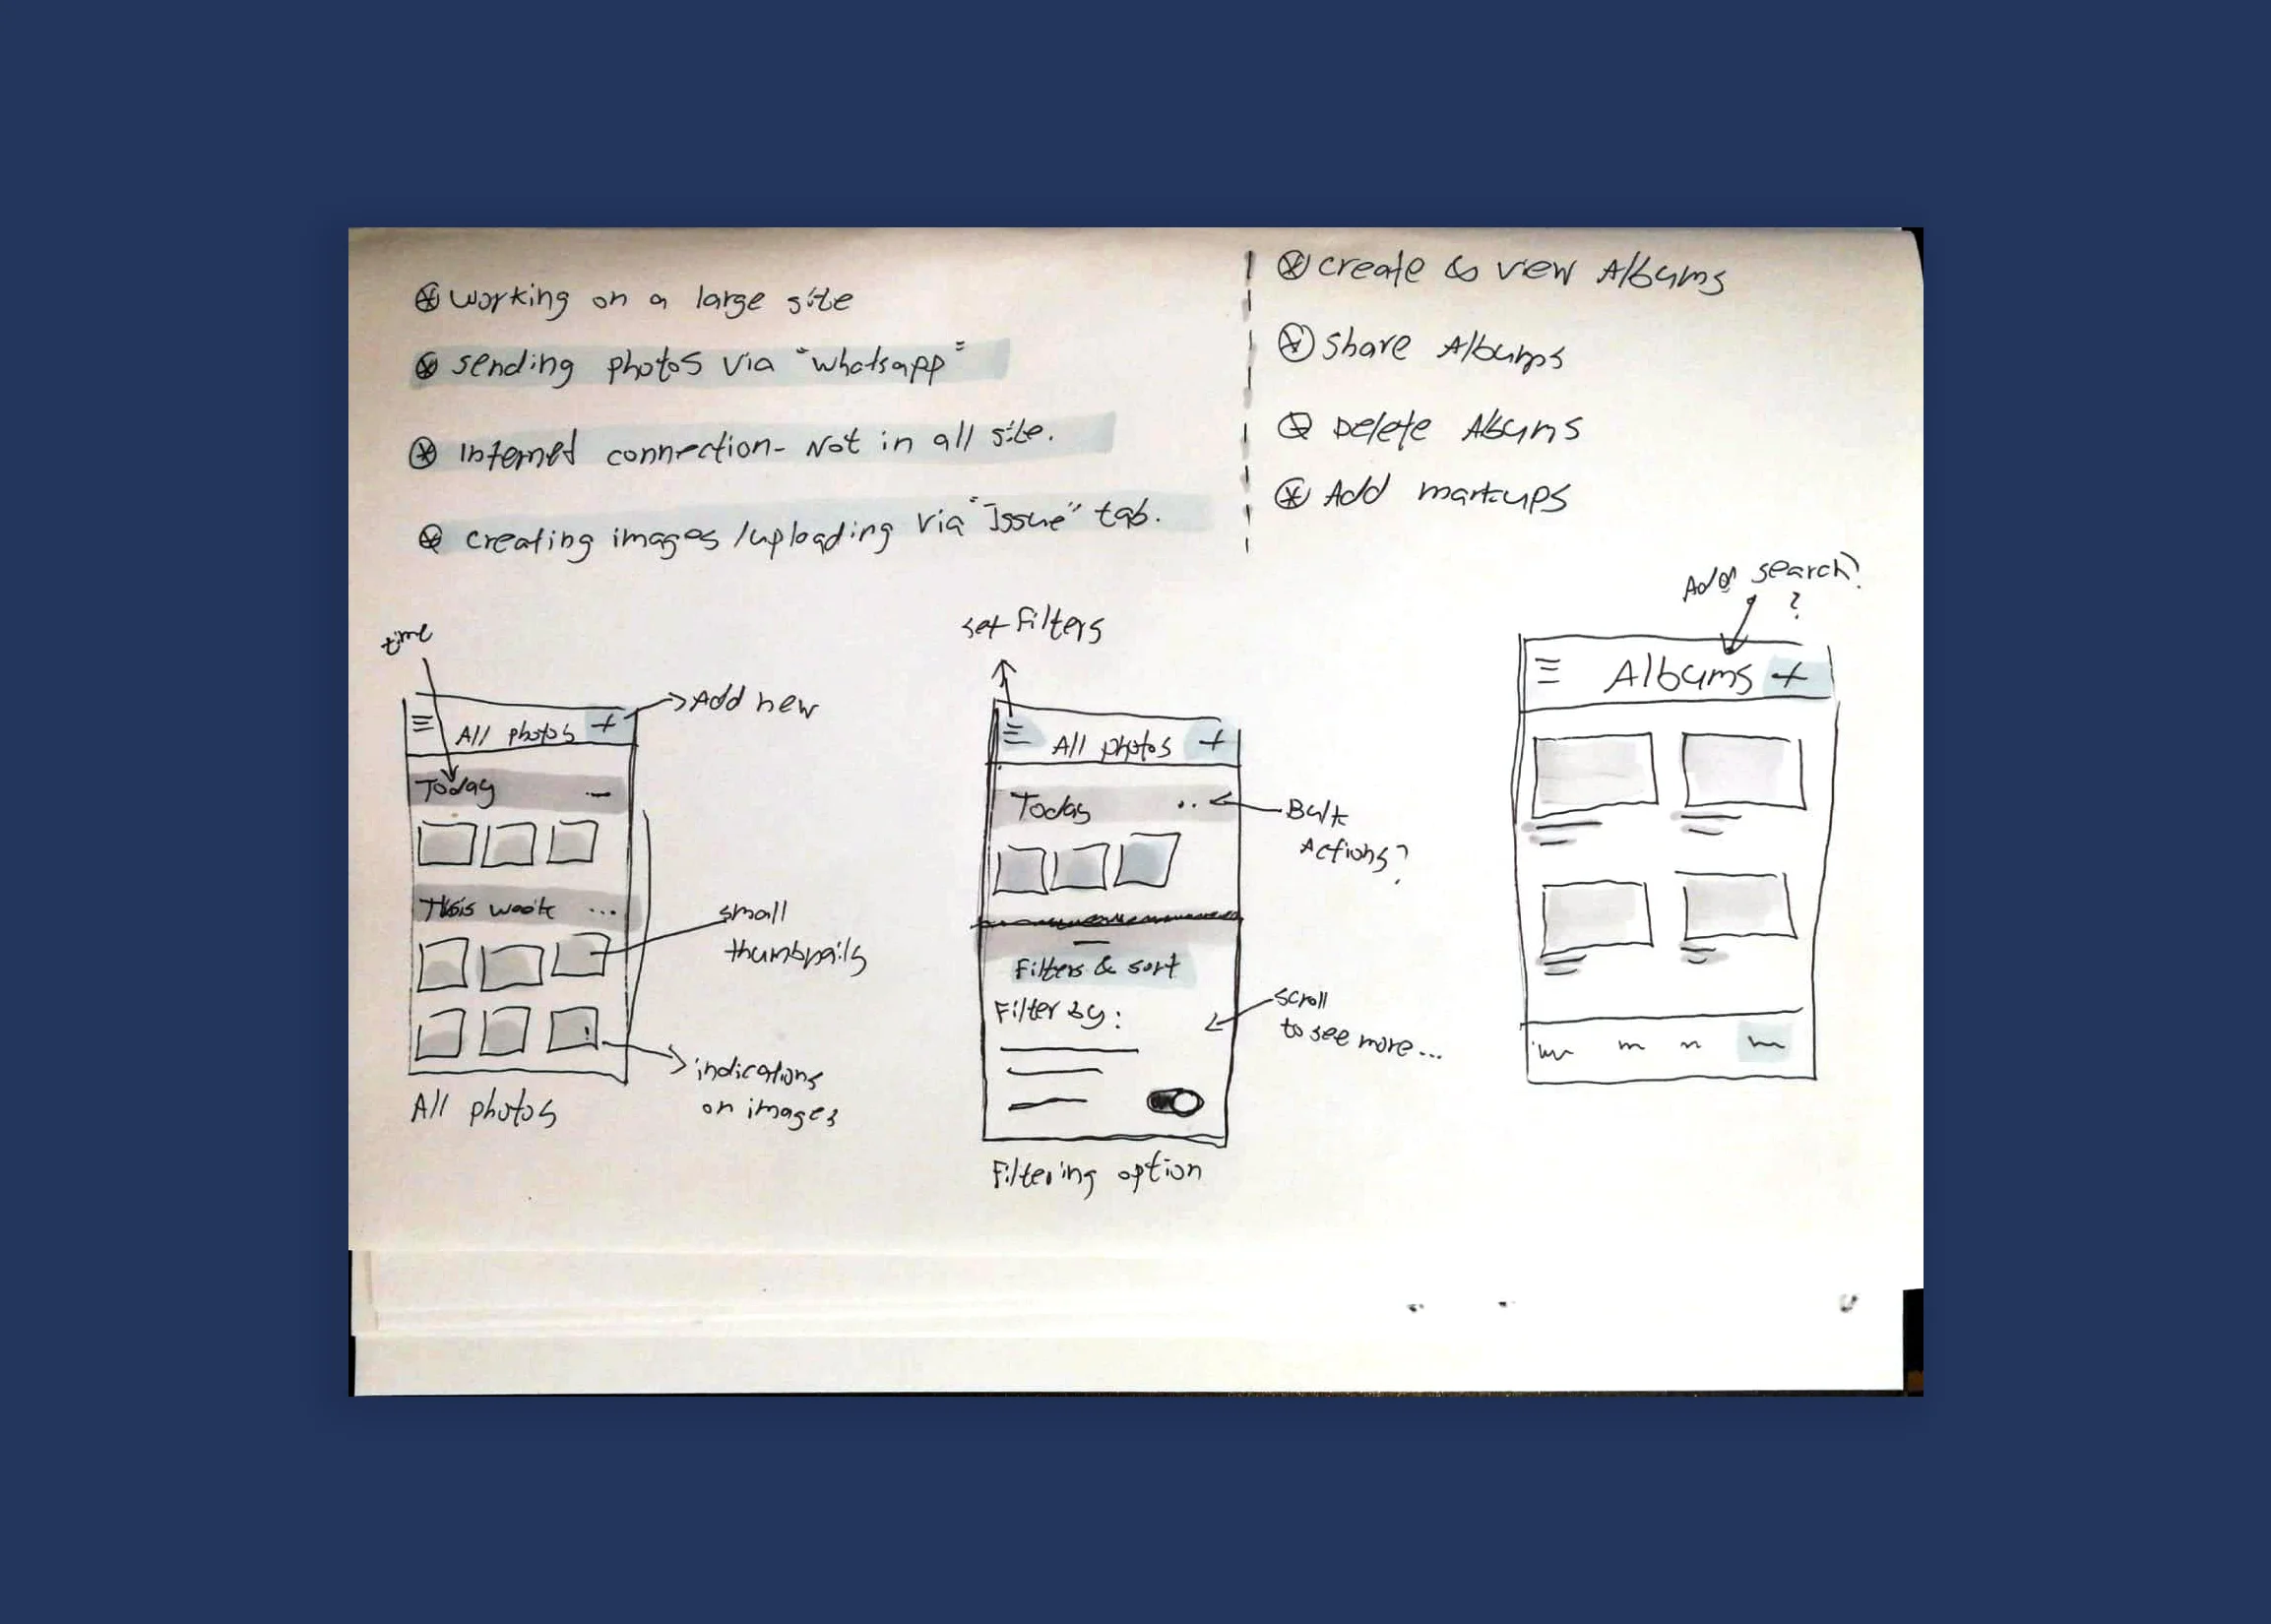 Working on a large site
Sending photos via "whatsapp"
Internet connection - Not in all site.
Creating images /uploading via "Issue" tab.
Create & view Albums
Share Albums
Delete Albums
Add markups
time
All photos +
Add new
Today
This week ...
small
thumbnails
indications
on images
All photos
set filters
All photos +
Today ..
Bulk
Actions?
Filters & sort
Filter by:
scroll
to see more...
Filtering option
Add search?
?
Albums +